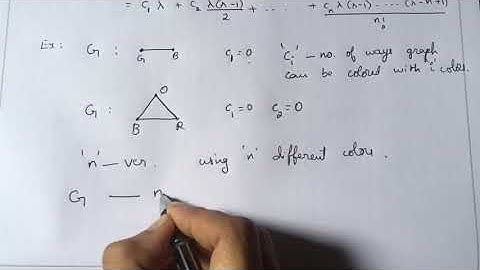 = C₁ λ + C₂ λ(λ-1)/2 + ..... + Cₙ λ(λ-1) .... (λ-n+1)/n!
Ex: G : G B C₁ = 0 'Cᵢ' – no. of ways graph
can be colored with 'i' colors.
G : O B R C₁ = 0 C₂ = 0
'n' – ver. using 'n' different colors.
G — n